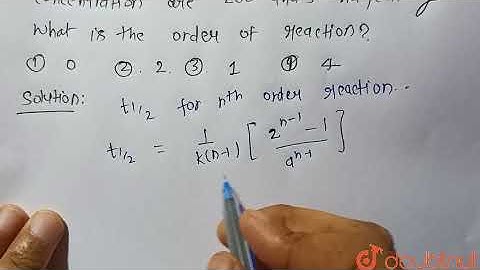 concentration are 200
What is the order of reaction?
① 0 ② . 2. ③ 1 ④ 4
Solution: t1/2 for nth order reaction..
t1/2 = 1/K(n-1) [ 2^n-1 - 1 / a^n-1 ]
doubtnut